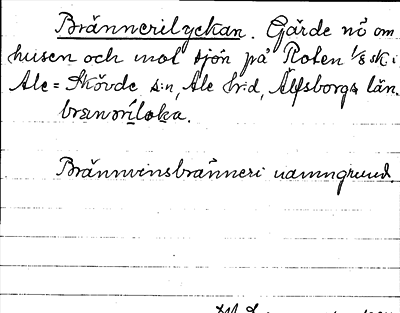 Brännerilyckan. Gärde nö om
husen och mot sjön på Roten 1/8 sk i
Ale-Skövde s:n, Ale hrd, Älfsborgs län.
Brännvinsbränneri namngrund.